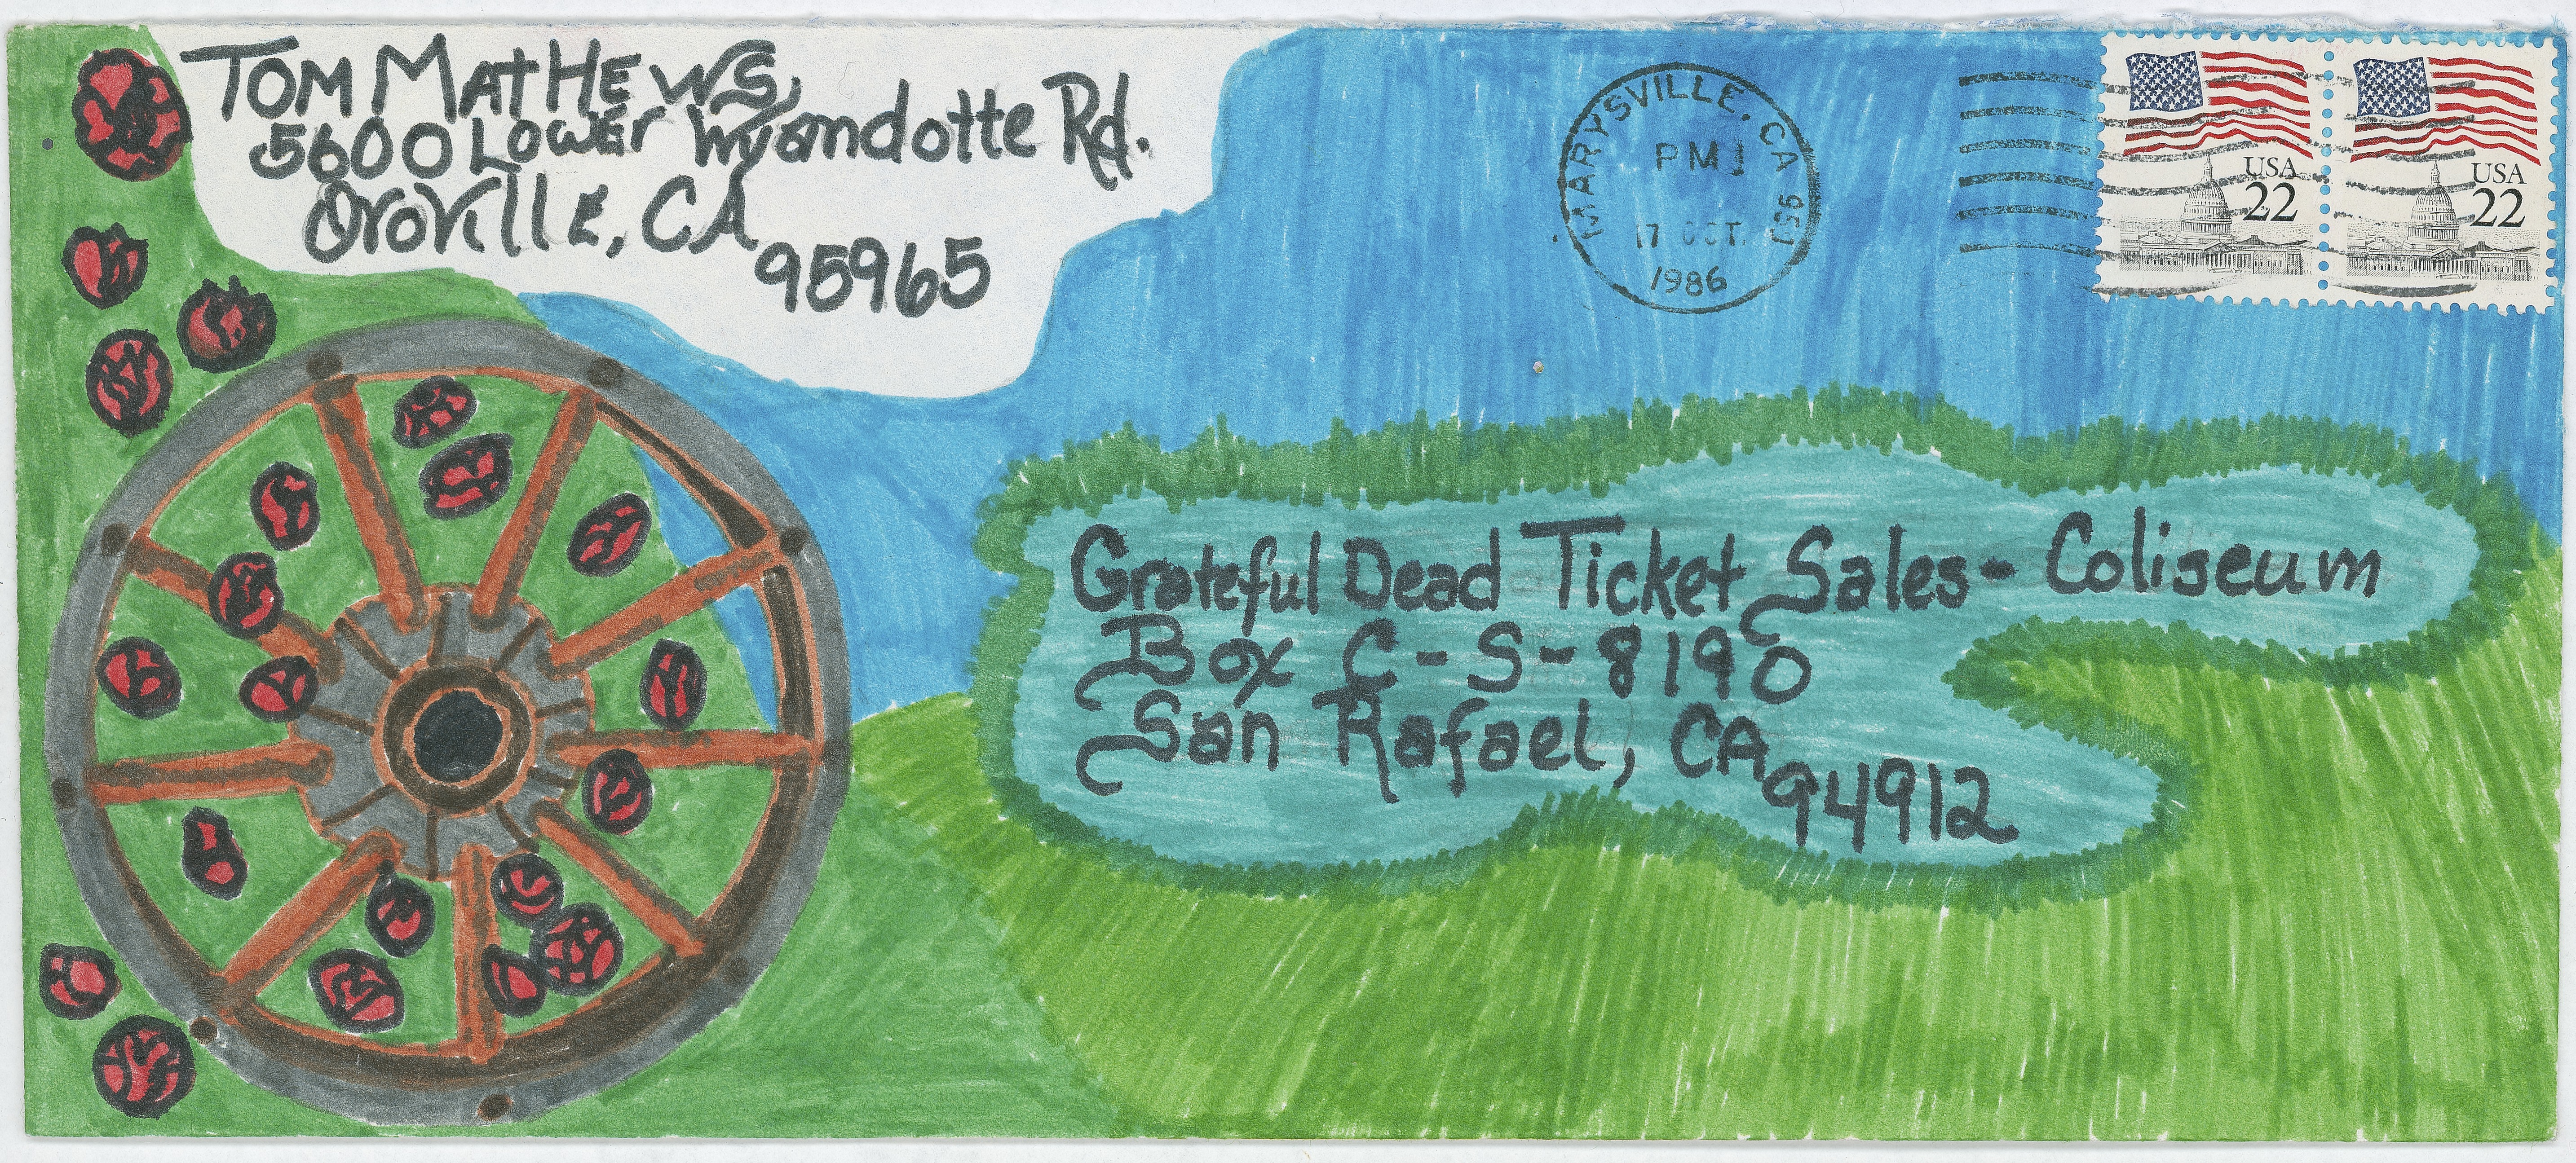 Tom Mathews
5600 Lower Wyandotte Rd.
Oroville, CA
95965
MARYSVILLE, CA 959
PM
17 OCT.
1986
USA
22
USA
22
Grateful Dead Ticket Sales - Coliseum
Box C-S-8190
San Rafael, CA
94912